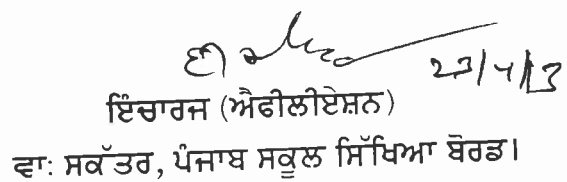 23/4/13
ਇੰਚਾਰਜ (ਐਫੀਲੀਏਸ਼ਨ)
ਵਾ: ਸਕੱਤਰ, ਪੰਜਾਬ ਸਕੂਲ ਸਿੱਖਿਆ ਬੋਰਡ।